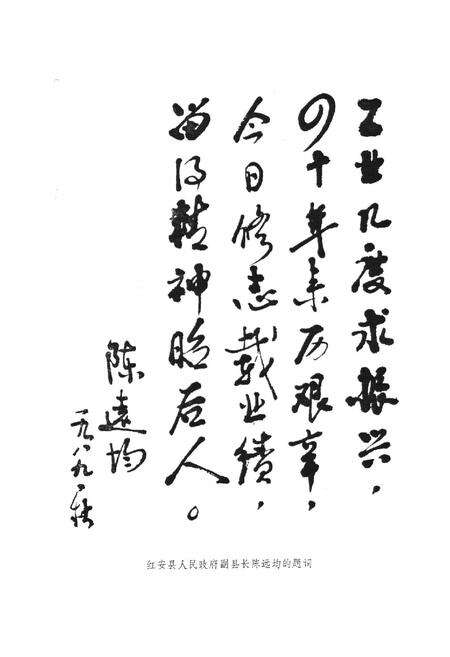 工业几度求振兴，
四十年来历艰辛，
今日修志载业绩，
留得精神昭后人。
陈远均
一九八九·秋
红安县人民政府副县长陈远均的题词